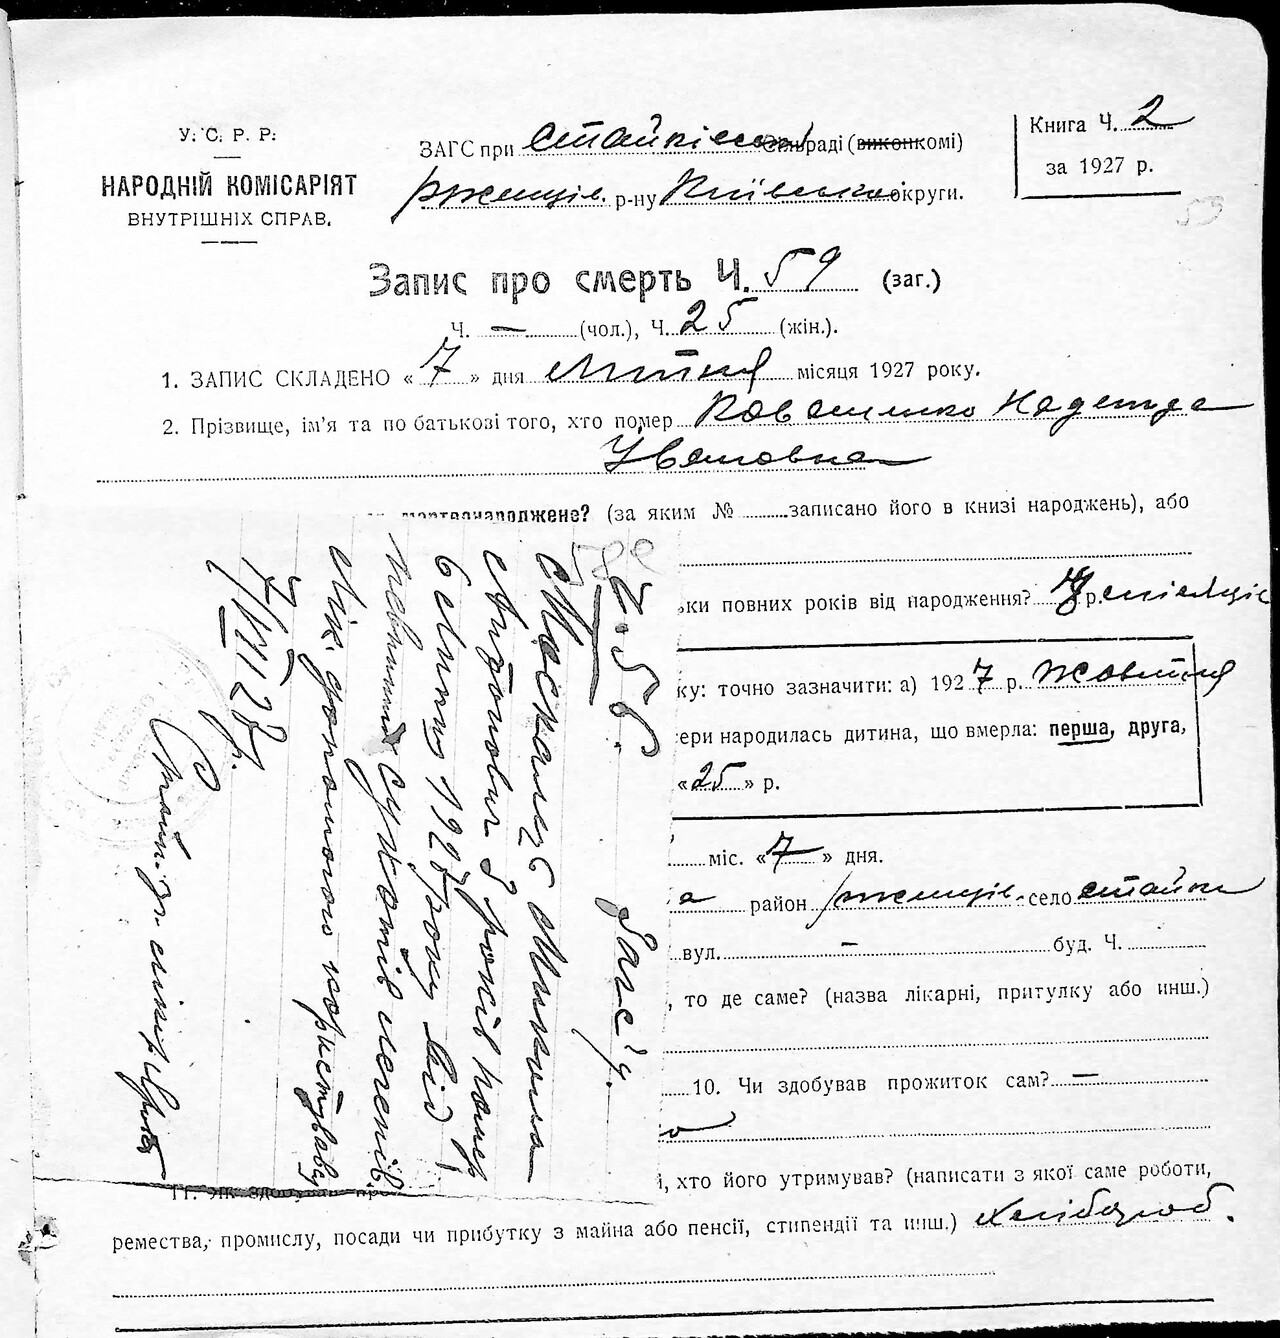 У. С. Р. Р.
НАРОДНІЙ КОМІСАРІЯТ
ВНУТРІШНІХ СПРАВ.
ЗАГС при Стайківськ Сільраді (виконкомі)
Ржищів. р-ну Київсько округи.
Книга Ч. 2
за 1927 р.
59
Запис про смерть Ч. 59 (заг.)
Ч. — (чол.), Ч. 25 (жін.).
1. ЗАПИС СКЛАДЕНО « 7 » дня липня місяця 1927 року.
2. Прізвище, ім'я та по батькові того, хто помер Коваленко Надежда
Ивановна
мертвонароджене? (за яким № записано його в книзі народжень), або
ьки повних років від народження? р. місяців
ку: точно зазначити: а) 1927 р. жовтня
ери народилась дитина, що вмерла: перша, друга,
«25» р.
міс. «7» дня.
а район Ржищів. село Стайки
вул. — буд. Ч.
, то де саме? (назва лікарні, притулку або инш.)
10. Чи здобував прожиток сам? —
о
і, хто його утримував? (написати з якої саме роботи,
ремества, промислу, посади чи прибутку з майна або пенсії, стипендії та инш.) хлібороб.
58
Москалец Микола
Антонович 9 років помер
6 липня 1927 року від
сухотів легенів
Лік. допомогою користував
7/VII 27 р.